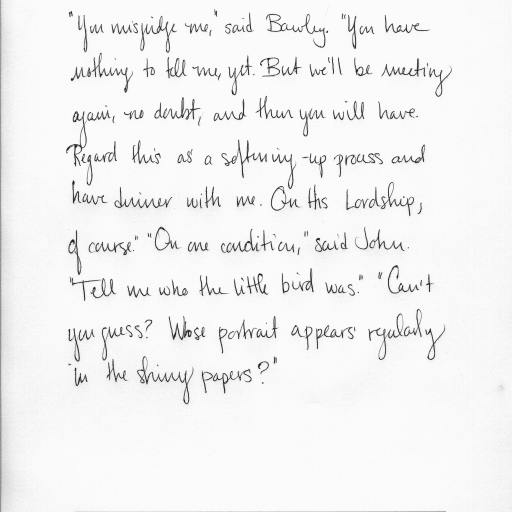 "You misjudge me," said Bawley. "You have
nothing to tell me, yet. But we'll be meeting
again, no doubt, and then you will have.
Regard this as a softening-up process and
have dinner with me. On His Lordship,
of course." "On one condition," said John.
"Tell me who the little bird was." "Can't
you guess? Whose portrait appears regularly
in the shiny papers?"